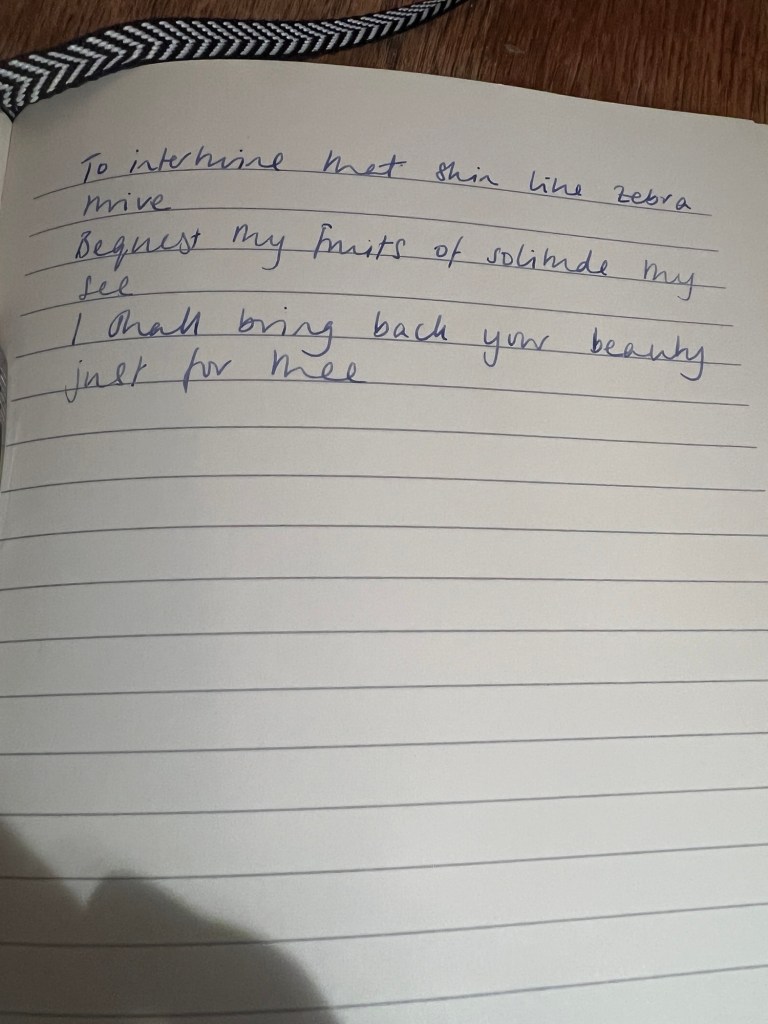 To intertwine that skin like zebra
thrive
Bequest my fruits of solitude my
see
I shall bring back your beauty
just for thee